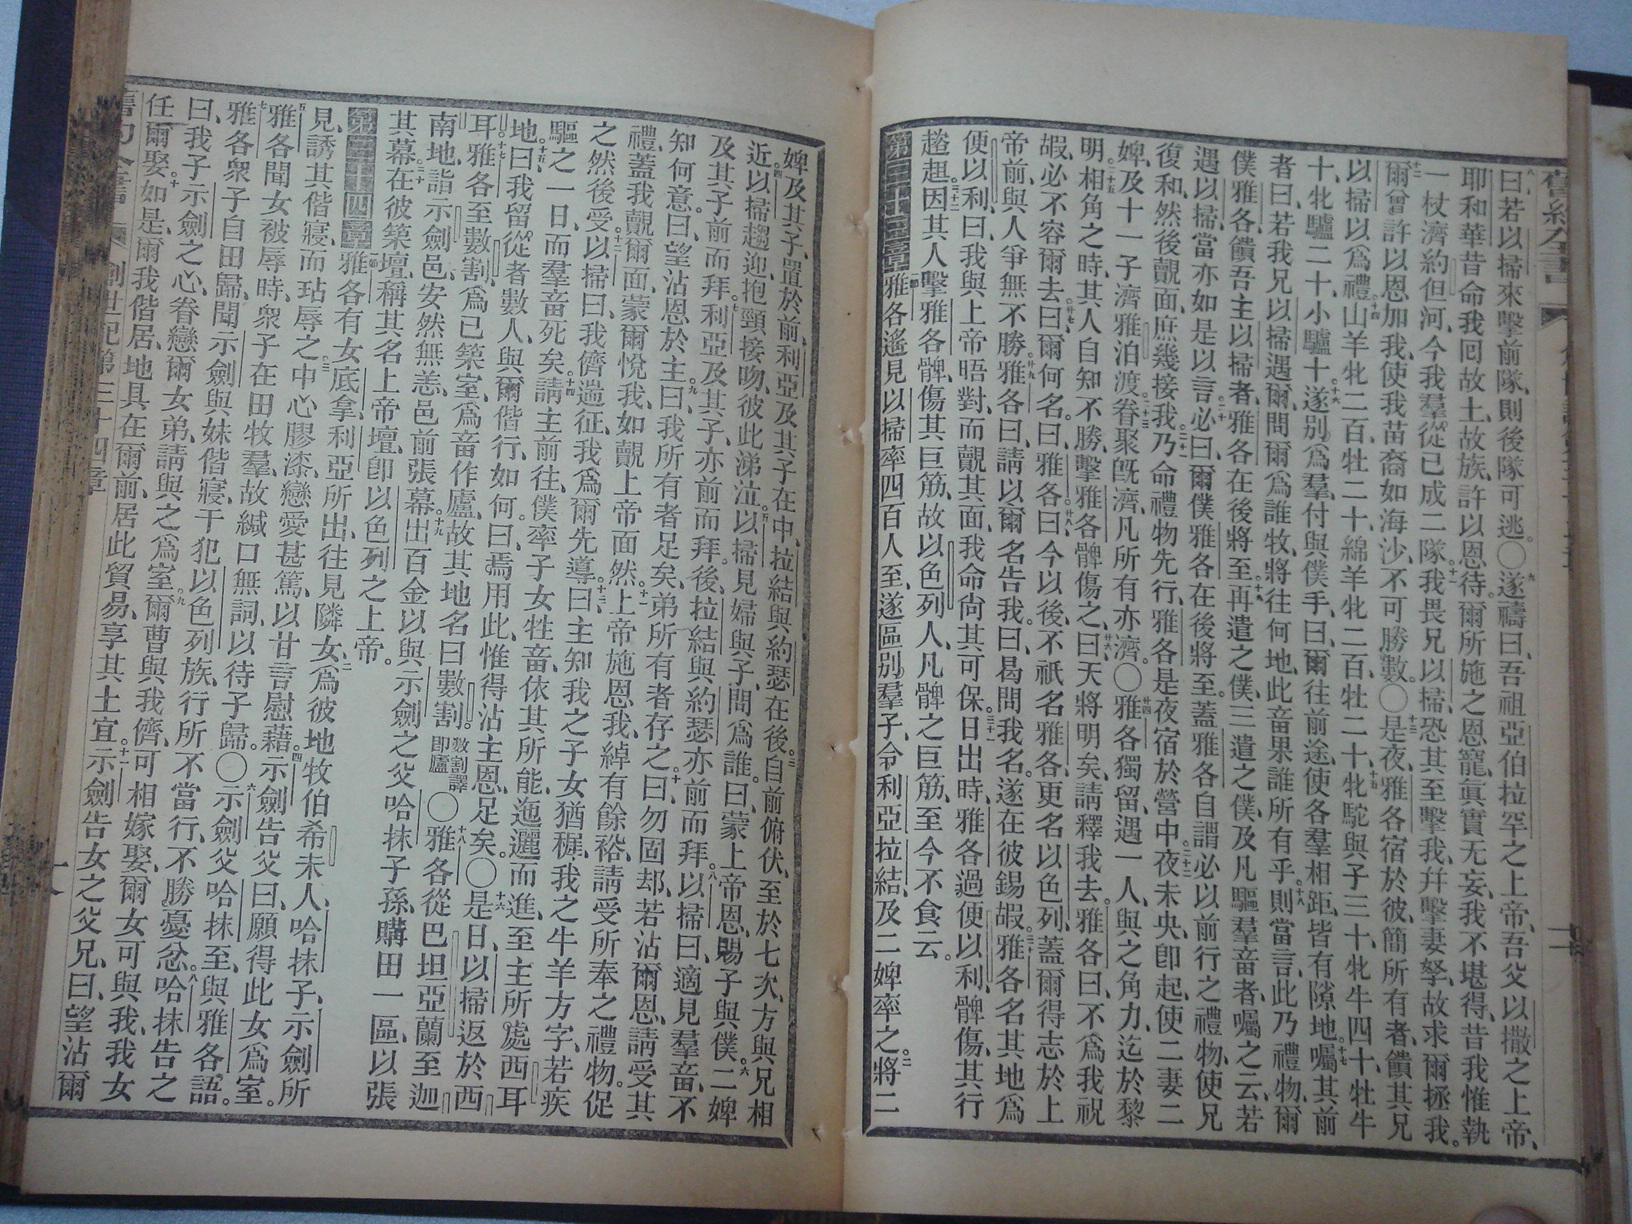 曰、若以掃來擊前隊、則後隊可逃。〇遂禱曰、吾祖亞伯拉罕之上帝、吾父以撒之上帝、
耶和華昔命我囘故土、故族、許以恩待、爾所施之恩寵、眞實无妄、我不堪得、昔我惟執
一杖濟約但河、今我羣從已成二隊。我畏兄以掃、恐其至擊我、幷擊妻孥、故求爾拯我。
爾曾許以恩加我、使我苗裔如海沙、不可勝數。〇是夜、雅各宿於彼、簡所有者饋其兄
以掃以爲禮。山羊牝二百牡二十、綿羊牝二百牡二十、牝駝與子三十、牝牛四十、牡牛
十、牝驢二十、小驢十。遂別爲羣、付與僕手、曰、爾往前途、使各羣相距、皆有隙地。囑其前
者曰、若我兄以掃遇爾、問爾爲誰牧、將往何地、此畜果誰所有乎。則當言、此乃禮物、爾
僕雅各饋吾主以掃者、雅各在後將至。再遣之僕、三遣之僕、及凡驅羣畜者、囑之云、若
遇以掃、當亦如是以言。必曰、爾僕雅各在後將至。蓋雅各自謂必以前行之禮物、使兄
復和、然後覿面、庶幾接我。乃命禮物先行、雅各是夜宿於營中。夜未央、卽起、使二妻二
婢、及十一子濟雅泊渡。眷聚旣濟、凡所有亦濟。〇雅各獨留、遇一人、與之角力、迄於黎
明。相角之時、其人自知不勝、擊雅各髀傷之。曰、天將明矣、請釋我去。雅各曰、不爲我祝
嘏、必不容爾去。曰、爾何名。曰、雅各。曰、今以後、不祇名雅各、更名以色列、蓋爾得志於上
帝前、與人爭無不勝。雅各曰、請以爾名告我。曰、曷問我名。遂在彼錫嘏。雅各名其地爲
便以利、曰、我與上帝晤對、而覿其面、我命尙其可保。日出時、雅各過便以利、髀傷、其行
趑趄。因其人擊雅各髀、傷其巨筋、故以色列人、凡髀之巨筋、至今不食云。
第三十三章 雅各遙見以掃率四百人至、遂區別羣子、令利亞、拉結、及二婢率之。將二
婢及其子、置於前、利亞及其子在中、拉結與約瑟在後。自前俯伏、至於七次、方與兄相
近。以掃趨迎、抱頸接吻、彼此涕泣。以掃見婦與子、問爲誰。曰、蒙上帝恩、賜子與僕。二婢
及其子前而拜。利亞及其子、亦前而拜。後、拉結與約瑟亦前而拜。以掃曰、適見羣畜、不
知何意。曰、望沾恩於主。曰、我所有者足矣、弟所有者存之。曰、勿固却、若沾爾恩、請受其
禮、蓋我覿爾面、蒙爾悅我、如覿上帝面然。上帝施恩我、綽有餘裕、請受所奉之禮物。促
之然後受。以掃曰、我儕遄征、我爲爾先導。曰、主知我之子女猶穉、我之牛羊方字、若疾
驅之一日、而羣畜死矣。請主前往、僕率子女牲畜、依其所能、迤邐而進、至主所處西耳
地。曰、我留從者數人、與爾偕行、如何。曰、焉用此、惟得沾主恩足矣。〇是日、以掃返於西
耳。雅各至數割、爲己築室、爲畜作廬、故其地名曰數割。數割譯卽廬〇雅各從巴坦亞蘭至迦
南地、詣示劍邑、安然無恙、邑前張幕。出百金以與示劍之父哈抹子孫、購田一區、以張
其幕。在彼築壇、稱其名上帝壇、卽以色列之上帝。
第三十四章 雅各有女底拿、利亞所出、往見隣女。爲彼地牧伯希未人、哈抹子、示劍所
見、誘其偕寢、而玷辱之。中心膠漆、戀愛甚篤、以甘言慰藉。示劍告父曰、願得此女爲室。
雅各聞女被辱時、衆子在田牧羣、故緘口無詞、以待子歸。〇示劍父哈抹至、與雅各語。
雅各衆子自田歸、聞示劍與妹偕寢、干犯以色列族、行所不當行、不勝憂忿。哈抹告之
曰、我子示劍之心、眷戀爾女弟、請與之爲室。爾曹與我儕、可相嫁娶、爾女可與我、我女
任爾娶。如是爾我偕居、地具在爾前、居此貿易、享其土宜。示劍告女之父兄、曰、望沾爾
創世記第三十四章
十八